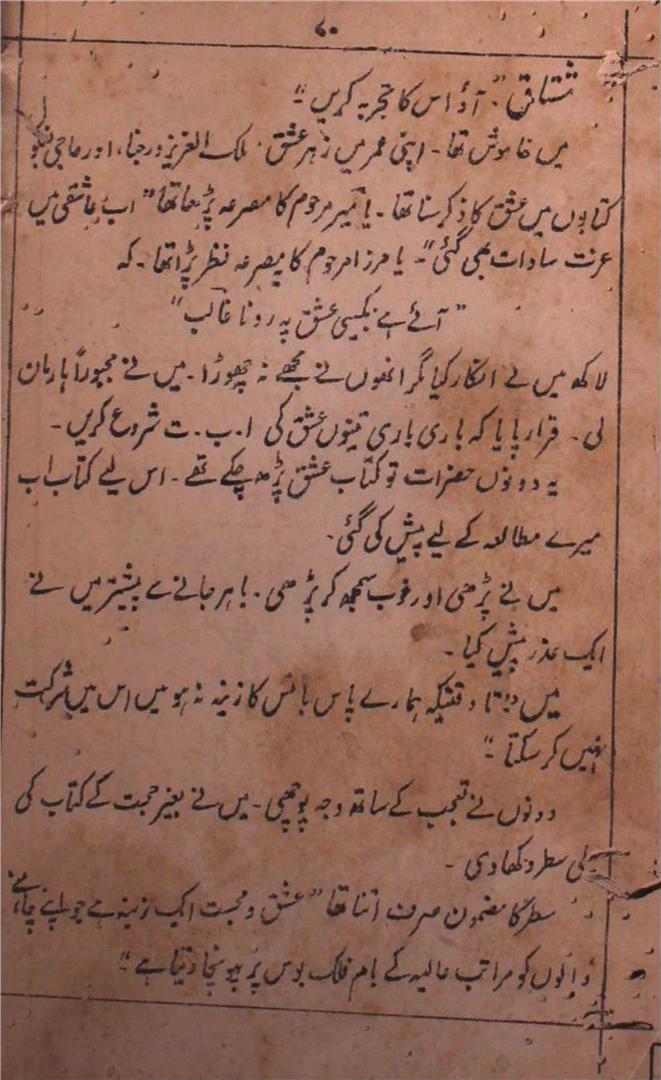 ۸۰
مشتاق "آؤ اس کا تجربہ کریں"
میں خاموش تھا۔ اپنی عمر میں زہر عشق، ملک العزیز ورجنا، اور حاجی بغلول
کتابوں میں عشق کا ذکر سنا تھا۔ یا میر مرحوم کا مصرعہ پڑھا تھا "اب عاشقی میں
عزت سادات بھی گئی"۔ یا مرزا مرحوم کا مصرعہ نظر پڑا تھا۔ کہ
"آئے ہے بیکسیِ عشق پہ رونا غالب"
لاکھ میں نے انکار کیا مگر انھوں نے مجھے نہ چھوڑا۔ میں نے مجبوراً ہار مان
لی۔ قرار پایا کہ باری باری تینوں عشق کی ا۔ ب۔ ت شروع کریں۔
یہ دونوں حضرات تو کتاب عشق پڑھ چکے تھے۔ اس لیے کتاب اب
میرے مطالعہ کے لیے پیش کی گئی۔
میں نے پڑھی اور خوب سمجھ کر پڑھی۔ باہر جانے سے پیشتر میں نے
ایک عذر پیش کیا۔
میں "تا وقتیکہ ہمارے پاس بانس کا زینہ نہ ہو میں اس میں شرکت
نہیں کر سکتا"
دونوں نے تعجب کے ساتھ وجہ پوچھی۔ میں نے بغیر حجت کے کتاب کی
پہلی سطر دکھا دی۔
سطر کا مضمون صرف اتنا تھا "عشق و محبت ایک زینہ ہے جو اپنے چاہنے
والوں کو مراتب عالیہ کے بام فلک بوس پر پہونچا دیتا ہے"